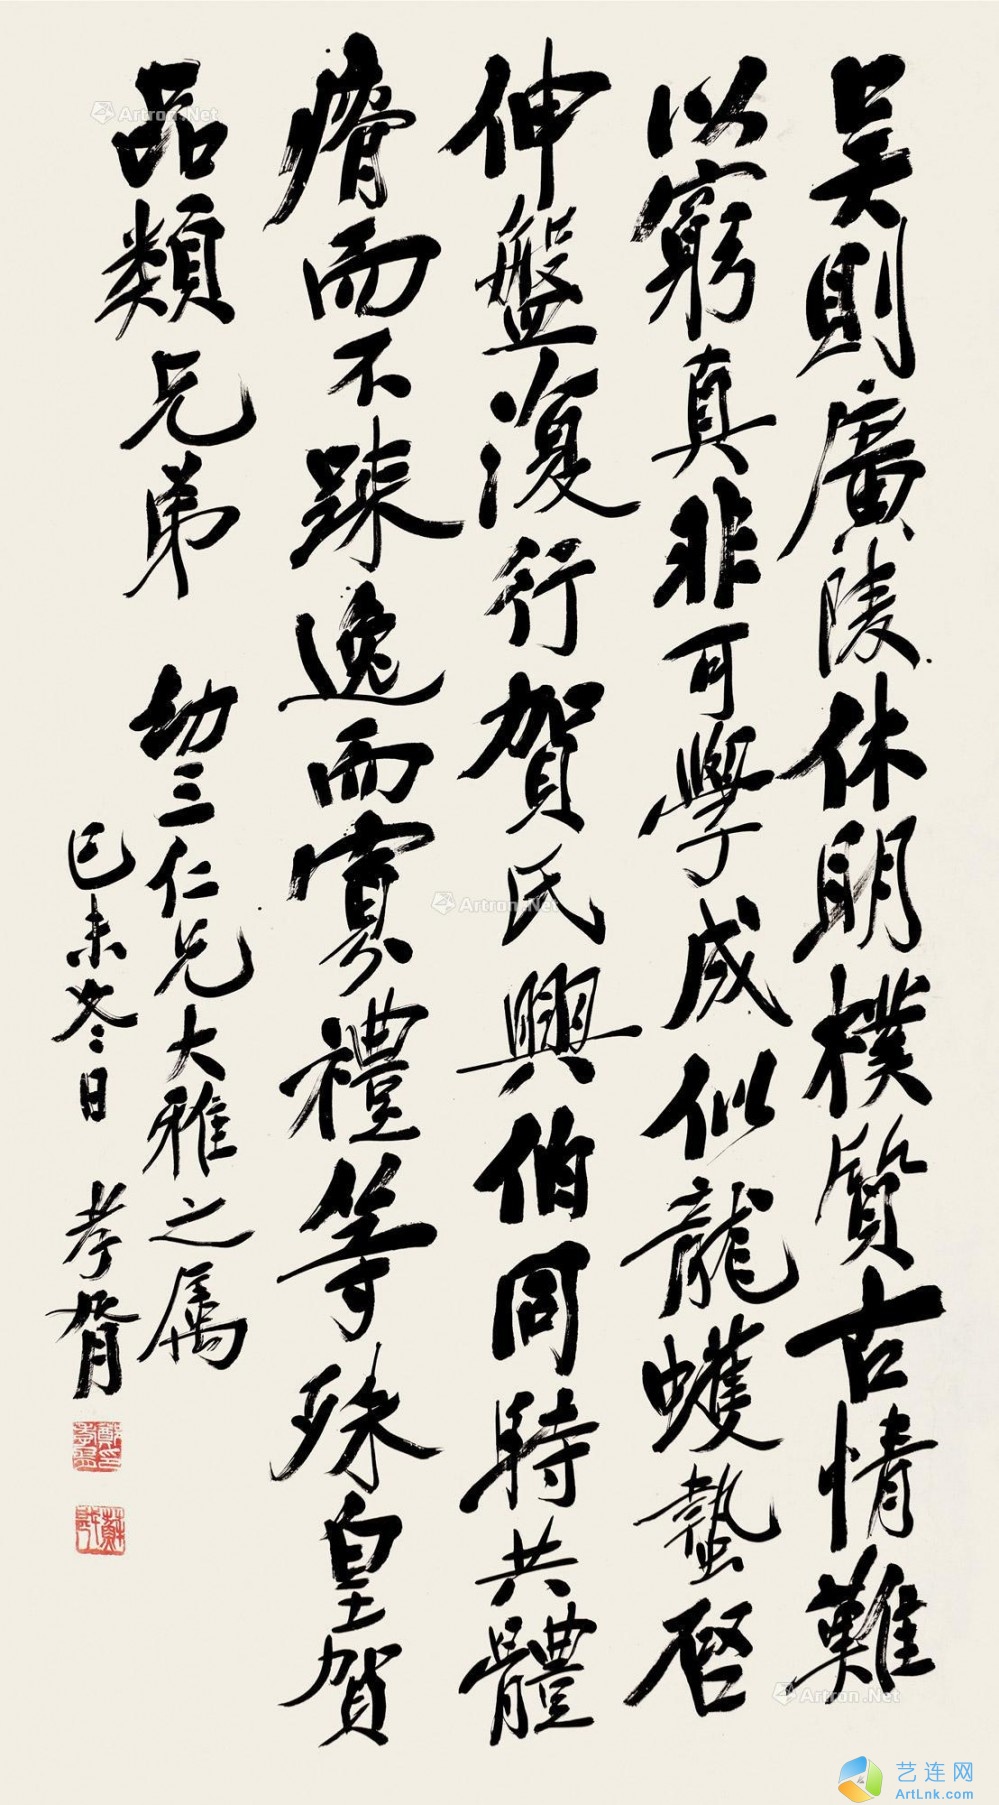 吴則廣陵休明樸質古情難
以窮真非可學成似龍蠖蟄啓
伸盤復行賀氏興伯同時共體
瘠而不疎逸而寡禮等殊皇賀
品類兄弟
幼三仁兄大雅之属
己未冬日 孝胥
鄭孝胥印
蘇戡
Artron.Net
Artron.Net
Artron.Net
艺连网
ArtLnk.com